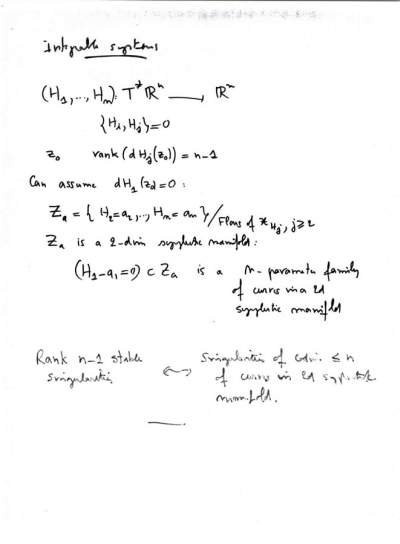 Integrable systems
(H₁,...,Hₙ): T*ℝⁿ ⟶ ℝⁿ
{Hᵢ, Hⱼ}=0
z₀ rank(dHⱼ(z₀))=n-1
Can assume dH₁(z₀)=0:
Zₐ = {H₂=a₂,..,Hₙ=aₙ}/Flows of X_Hⱼ, j≥2
Zₐ is a 2-dim symplectic manifold:
(H₁-a₁=0) ⊂ Zₐ is a n-parameter family
of curves in a 2d
symplectic manifold
Rank n-1 stable
singularities
↔
Singularities of codim. ≤ n
of curves in 2d symplectic
manifold.